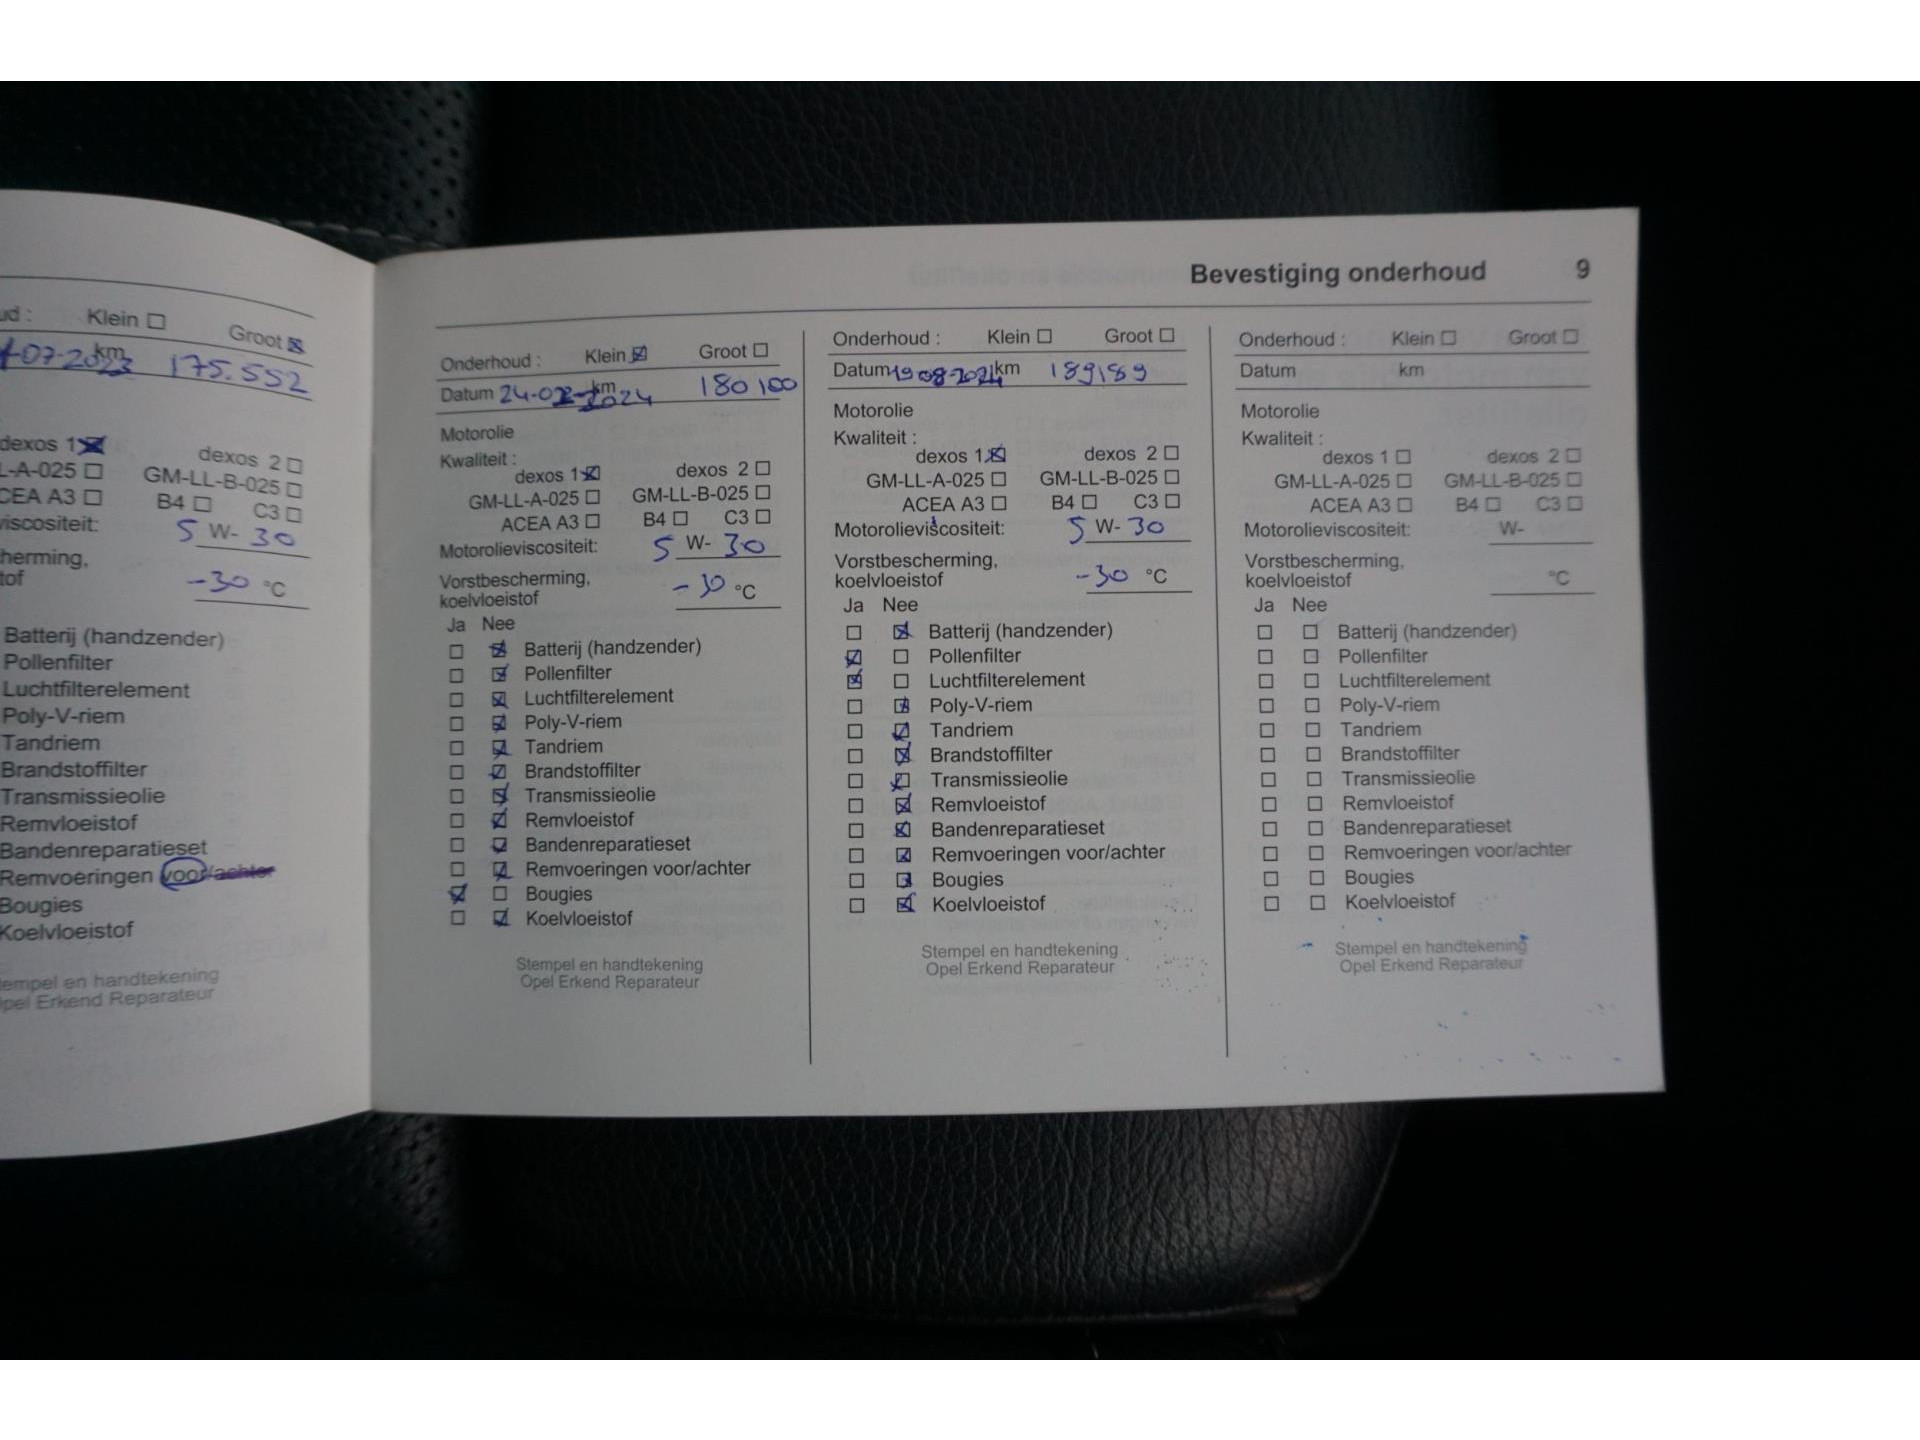 Bevestiging onderhoud 9
Klein ☐ Groot ☒
07-2023 km 175.552
dexos 1 ☒ dexos 2 ☐
GM-LL-B-025 ☐
B4 ☐ C3 ☐
5 W- 30
-30 °C
Batterij (handzender)
Pollenfilter
Luchtfilterelement
Poly-V-riem
Tandriem
Brandstoffilter
Transmissieolie
Remvloeistof
Bandenreparatieset
Remvoeringen voor/achter
Bougies
Koelvloeistof
Stempel en handtekening
Opel Erkend Reparateur
Onderhoud : Klein ☒ Groot ☐
Datum km 180 100
Motorolie
Kwaliteit :
dexos 1 ☒ dexos 2 ☐
GM-LL-A-025 ☐ GM-LL-B-025 ☐
ACEA A3 ☐ B4 ☐ C3 ☐
Motorolieviscositeit: 5 W- 30
Vorstbescherming,
koelvloeistof -30 °C
Ja Nee
☐ ☒ Batterij (handzender)
☐ ☒ Pollenfilter
☐ ☒ Luchtfilterelement
☐ ☒ Poly-V-riem
☐ ☒ Tandriem
☐ ☒ Brandstoffilter
☐ ☒ Transmissieolie
☐ ☒ Remvloeistof
☐ ☒ Bandenreparatieset
☐ ☒ Remvoeringen voor/achter
☒ ☐ Bougies
☐ ☒ Koelvloeistof
Stempel en handtekening
Opel Erkend Reparateur
Onderhoud : Klein ☐ Groot ☐
Datum 19-08-2024 km 189189
Motorolie
Kwaliteit :
dexos 1 ☒ dexos 2 ☐
GM-LL-A-025 ☐ GM-LL-B-025 ☐
ACEA A3 ☐ B4 ☐ C3 ☐
Motorolieviscositeit: 5 W- 30
Vorstbescherming,
koelvloeistof -30 °C
Ja Nee
☐ ☒ Batterij (handzender)
☒ ☐ Pollenfilter
☒ ☐ Luchtfilterelement
☐ ☒ Poly-V-riem
☐ ☒ Tandriem
☐ ☒ Brandstoffilter
☐ ☒ Transmissieolie
☐ ☒ Remvloeistof
☐ ☒ Bandenreparatieset
☐ ☒ Remvoeringen voor/achter
☐ ☒ Bougies
☐ ☒ Koelvloeistof
Stempel en handtekening
Opel Erkend Reparateur
Onderhoud : Klein ☐ Groot ☐
Datum km
Motorolie
Kwaliteit :
dexos 1 ☐ dexos 2 ☐
GM-LL-A-025 ☐ GM-LL-B-025 ☐
ACEA A3 ☐ B4 ☐ C3 ☐
Motorolieviscositeit: W-
Vorstbescherming,
koelvloeistof °C
Ja Nee
☐ ☐ Batterij (handzender)
☐ ☐ Pollenfilter
☐ ☐ Luchtfilterelement
☐ ☐ Poly-V-riem
☐ ☐ Tandriem
☐ ☐ Brandstoffilter
☐ ☐ Transmissieolie
☐ ☐ Remvloeistof
☐ ☐ Bandenreparatieset
☐ ☐ Remvoeringen voor/achter
☐ ☐ Bougies
☐ ☐ Koelvloeistof
Stempel en handtekening
Opel Erkend Reparateur